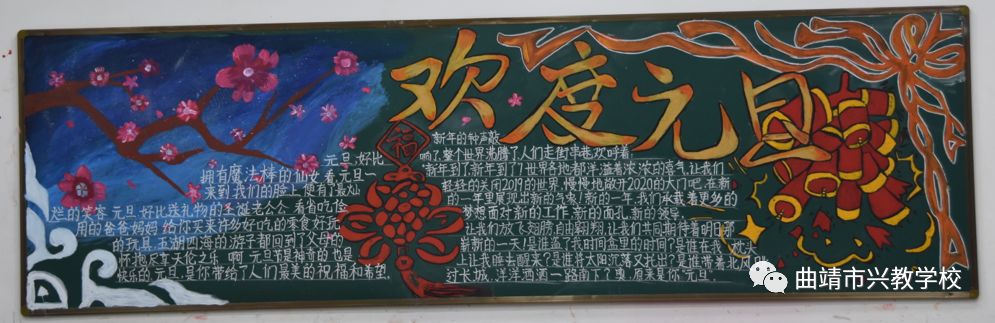 欢度元旦
福
元旦,好比
拥有魔法棒的仙女看,元旦一
来到,我们的脸上便有了最灿
烂的笑容.元旦好比送礼物的圣诞老公公.看省吃俭
用的爸爸妈妈给你买来许多好吃的零食好玩
的玩具.五湖四海的游子都回到了父母的
怀抱尽享天伦之乐.啊,元旦节是神奇的也是
快乐的.元旦,是你带给了人们最美的祝福和希望.
新年的钟声敲
响了,整个世界沸腾了人们走街串巷欢呼着:
新年到了,新年到了!世界各地都洋溢着浓浓的喜气,让我们
轻轻的关闭2019的世界,慢慢地敞开2020的大门吧.在新
的一年里展现出新的气象!新的一年,我们承载着更多的
梦想面对新的工作,新的面孔,新的领导,
让我们放飞翅膀自由翱翔,让我们共同期待着明日那
崭新的一天!是谁盗了我时间盒里的时间?是谁在我枕头
上让我睡去醒来?是谁将太阳沉落又托出?是谁带着北风
过长城,洋洋洒洒一路南下?奥,原来是你"元旦".
曲靖市兴教学校